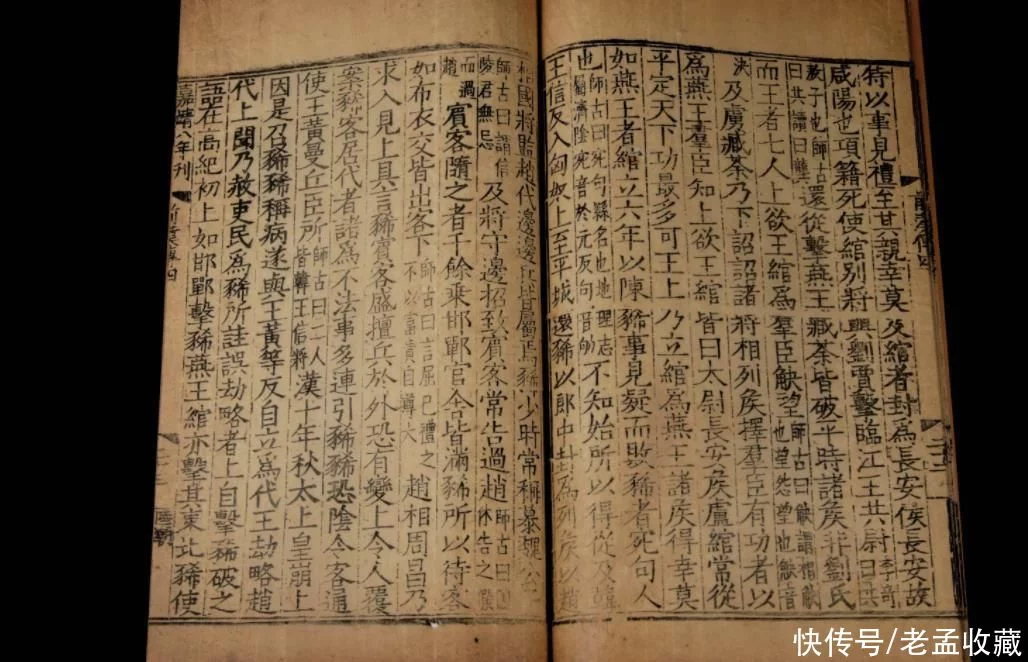 待以事見禮至其親幸莫及綰者封為長安侯長安故
咸陽也項籍死使綰別將與劉賈擊臨江王共尉李奇曰共
敖子也師古曰共讀曰龔還從擊燕王臧荼皆破平時諸侯非劉氏
而王者七人上欲王綰為羣臣觖望師古曰觖謂相觖也望怨望也觖音
決及虜臧荼乃下詔諸將相列侯擇羣臣有功者以
為燕王羣臣知上欲王綰皆曰太尉長安侯盧綰常從
平定天下功最多可王上乃立綰為燕王諸侯得幸莫
如燕王者綰立六年以陳豨事見疑而敗豨者死句人
也師古曰宛句縣名也地理志屬濟陰宛音於元反句音劬不知始所以得從及韓
王信反入匈奴上至平城還豨以郎中封為列侯以趙
相國將監趙代邊邊兵皆屬焉豨少時常稱慕魏公
師古曰謂信陵君無忌及將守邊招致賓客常告過趙師古曰因休告之隙
而過趙賓客隨之者千餘乘邯鄲官舍皆滿豨所以待客
如布衣交皆出客下師古曰言屈己禮之不以富貴自尊大趙相周昌乃
求入見上具言豨賓客盛擅兵於外恐有變上令人覆
案豨客居代者諸為不法事多連引豨豨恐陰令客通
使王黃曼丘臣所師古曰二人皆韓王信將漢十年秋太上皇崩上
因是召豨豨稱病遂與王黃等反自立為代王劫略趙
代上聞乃赦吏民為豨所詿誤劫略者上自擊豨破之
語在高紀初上如邯鄲擊豨燕王綰亦擊其東北豨使
嘉靖八年刊
快传号/老孟收藏